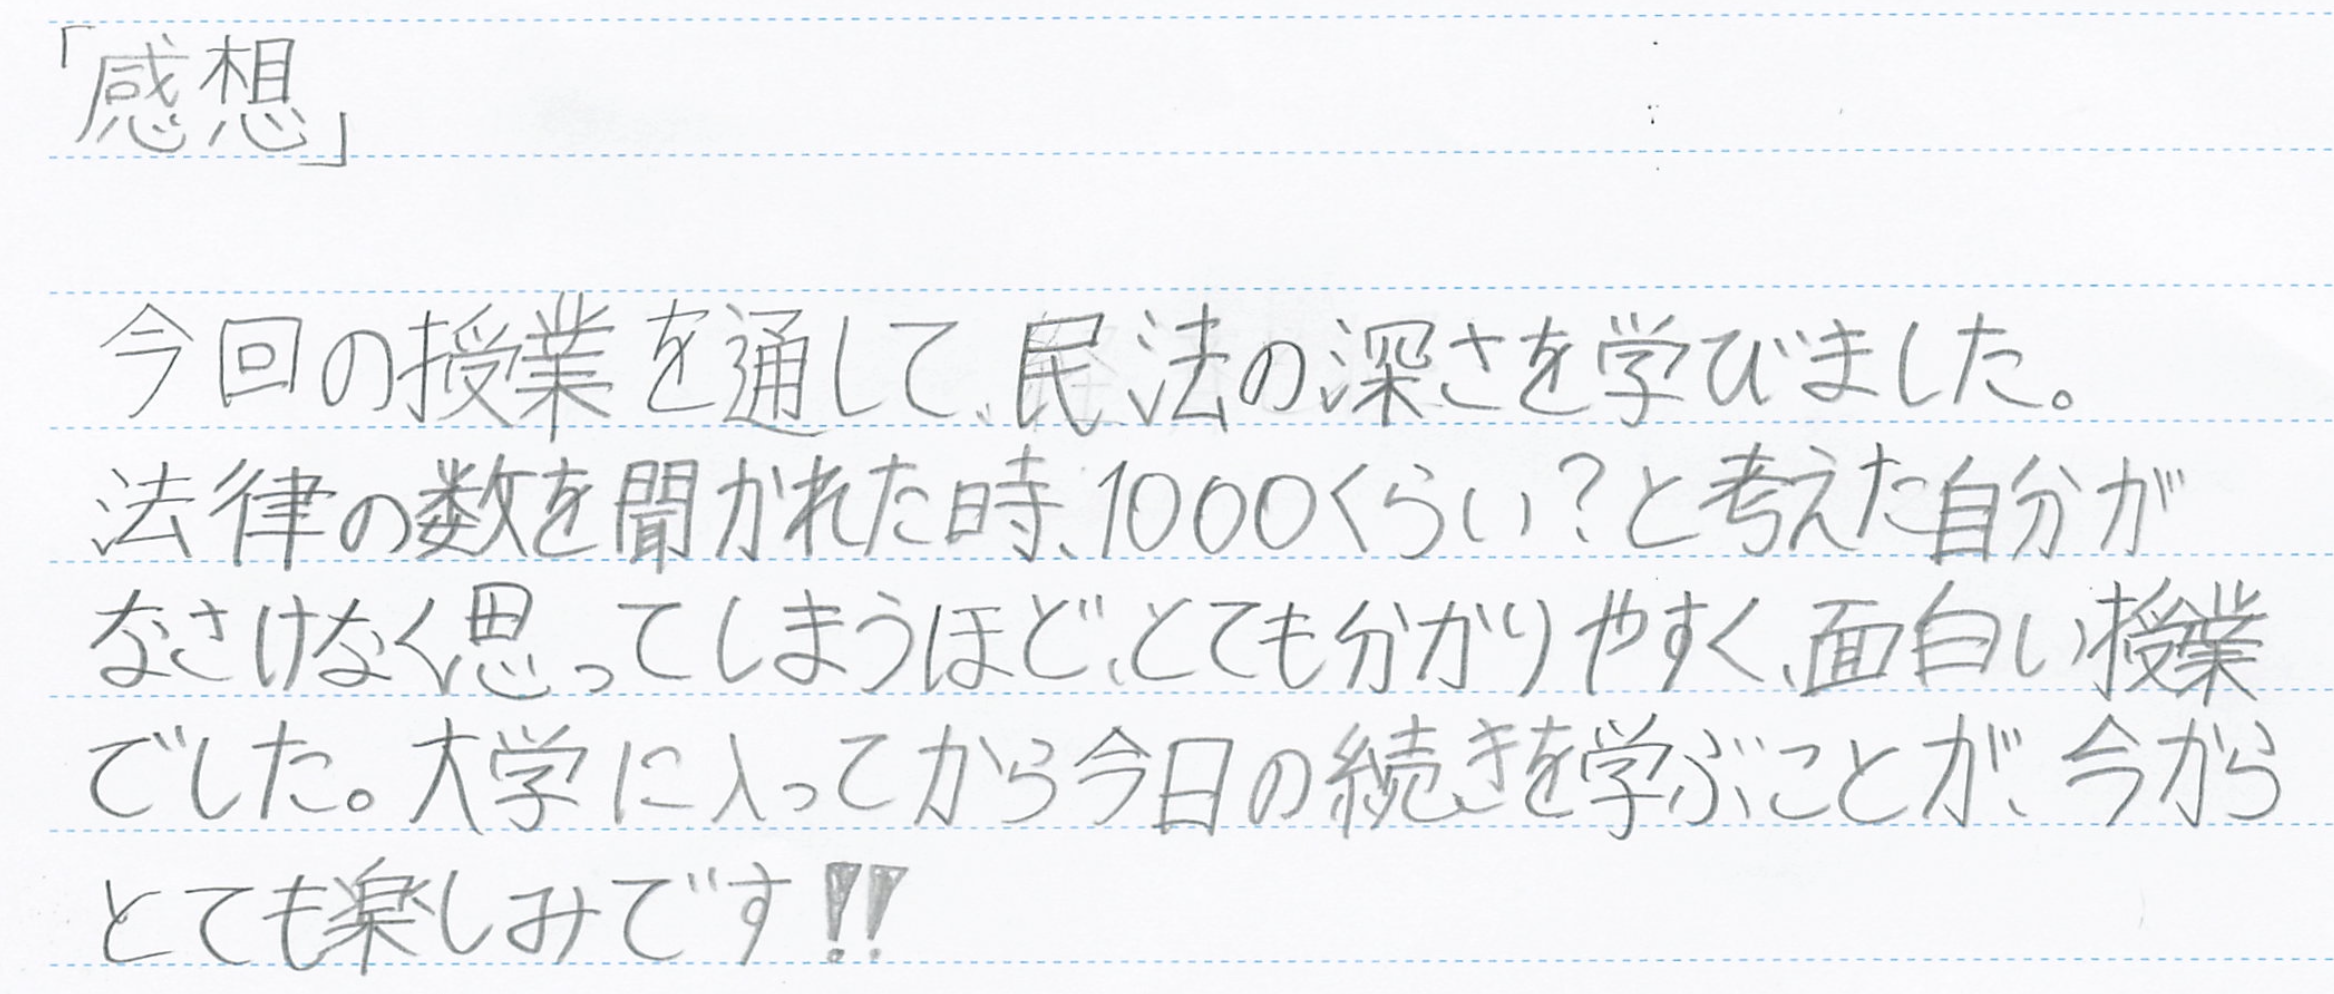 「感想」
今回の授業を通して、民法の深さを学びました。
法律の数を聞かれた時、1000くらい？と考えた自分が
なさけなく思ってしまうほど、とても分かりやすく、面白い授業
でした。大学に入ってから今日の続きを学ぶことが、今から
とても楽しみです!!